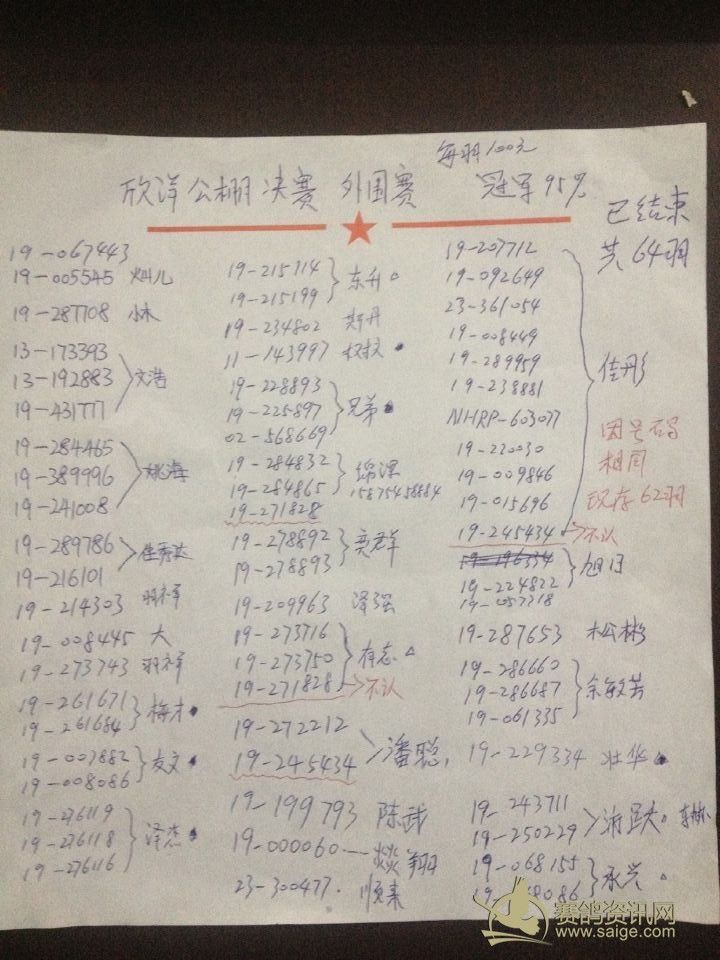 每羽100元
欣洋公棚决赛 外围赛 冠军95%
已结束
共64羽
19-067443
19-005545 灿儿
19-287708 小林
13-173393
13-192883 文浩
19-431777
19-284465
19-389996 姚海
19-241008
19-289786
19-216101
19-214303 羽祥
19-008445 大
19-273743 羽祥
19-261671
19-261684 梅才
19-007882 友文
19-008086
19-276119
19-276118 泽杰
19-276116
19-215714
19-215199 东升
19-234802 斯丹
11-143997
19-228893
19-225897 兄弟
02-568669
19-284832
19-284865
15875458884
19-271828
19-278892 奕群
19-278893
19-209963 泽强
19-273716
19-273750 有志
19-271828 不认
19-272212
19-245434 潘聪
19-199793 陈武
19-000060 焱翔
23-300477 顺来
19-207712
19-092649
23-361054
19-008449
19-289959
19-238881 佳彤
NHRP-603077
19-220030
19-009846
19-015696
19-245434 不认
因号码
相同
现存62羽
19-196334
19-224822 旭日
19-057318
19-287653 松彬
19-286660
19-286687 余敏芳
19-061335
19-229334 壮华
19-243711
19-250229
19-068155
承兴
赛鸽资讯网
www.saige.com